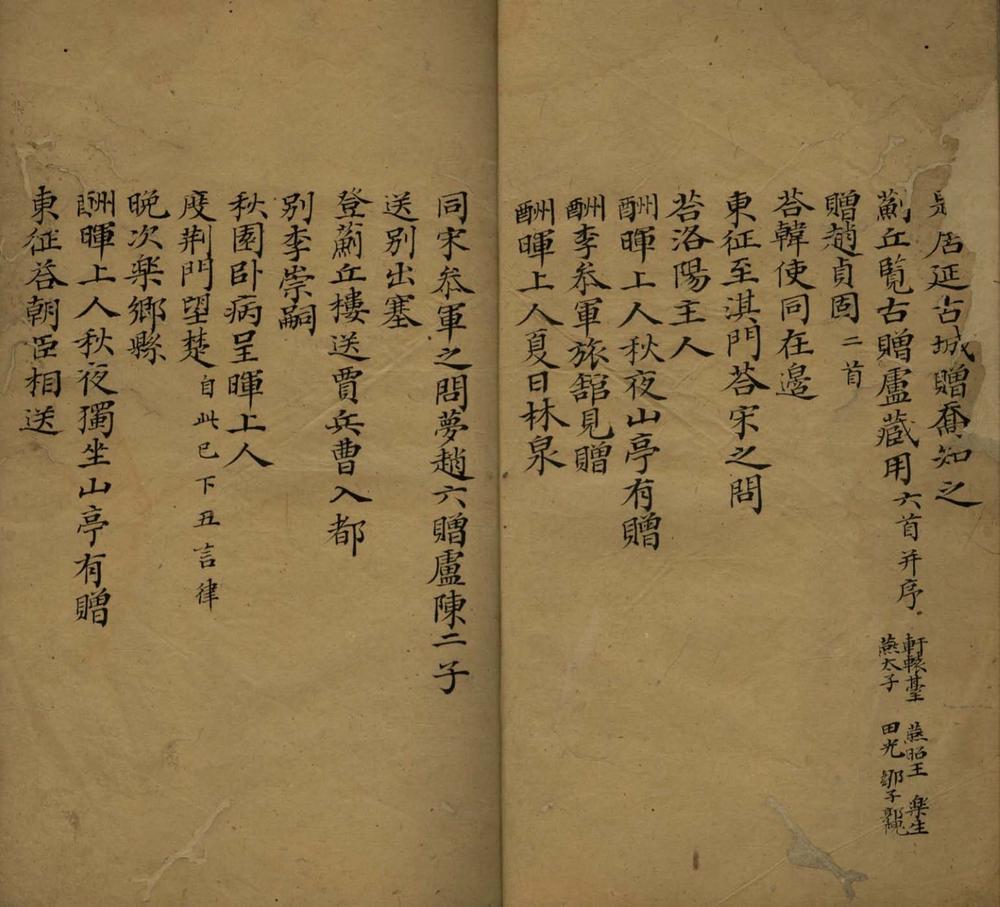 居延古城贈喬知之
薊丘覽古贈盧藏用六首并序
軒轅䑓 燕昭王 樂生
燕太子 田光 鄒子 郭隗
贈趙貞固二首
荅韓使同在邊
東征至淇門荅宋之問
荅洛陽主人
酬暉上人秋夜山亭有贈
酬李叅軍旅舘見贈
酬暉上人夏日林泉
同宋叅軍之問夢趙六贈盧陳二子
送別出塞
登薊丘樓送賈兵曹入都
別李崇嗣
秋園卧病呈暉上人
度荆門望楚自此已下五言律
晚次楽鄉縣
酬暉上人秋夜獨坐山亭有贈
東征荅朝臣相送